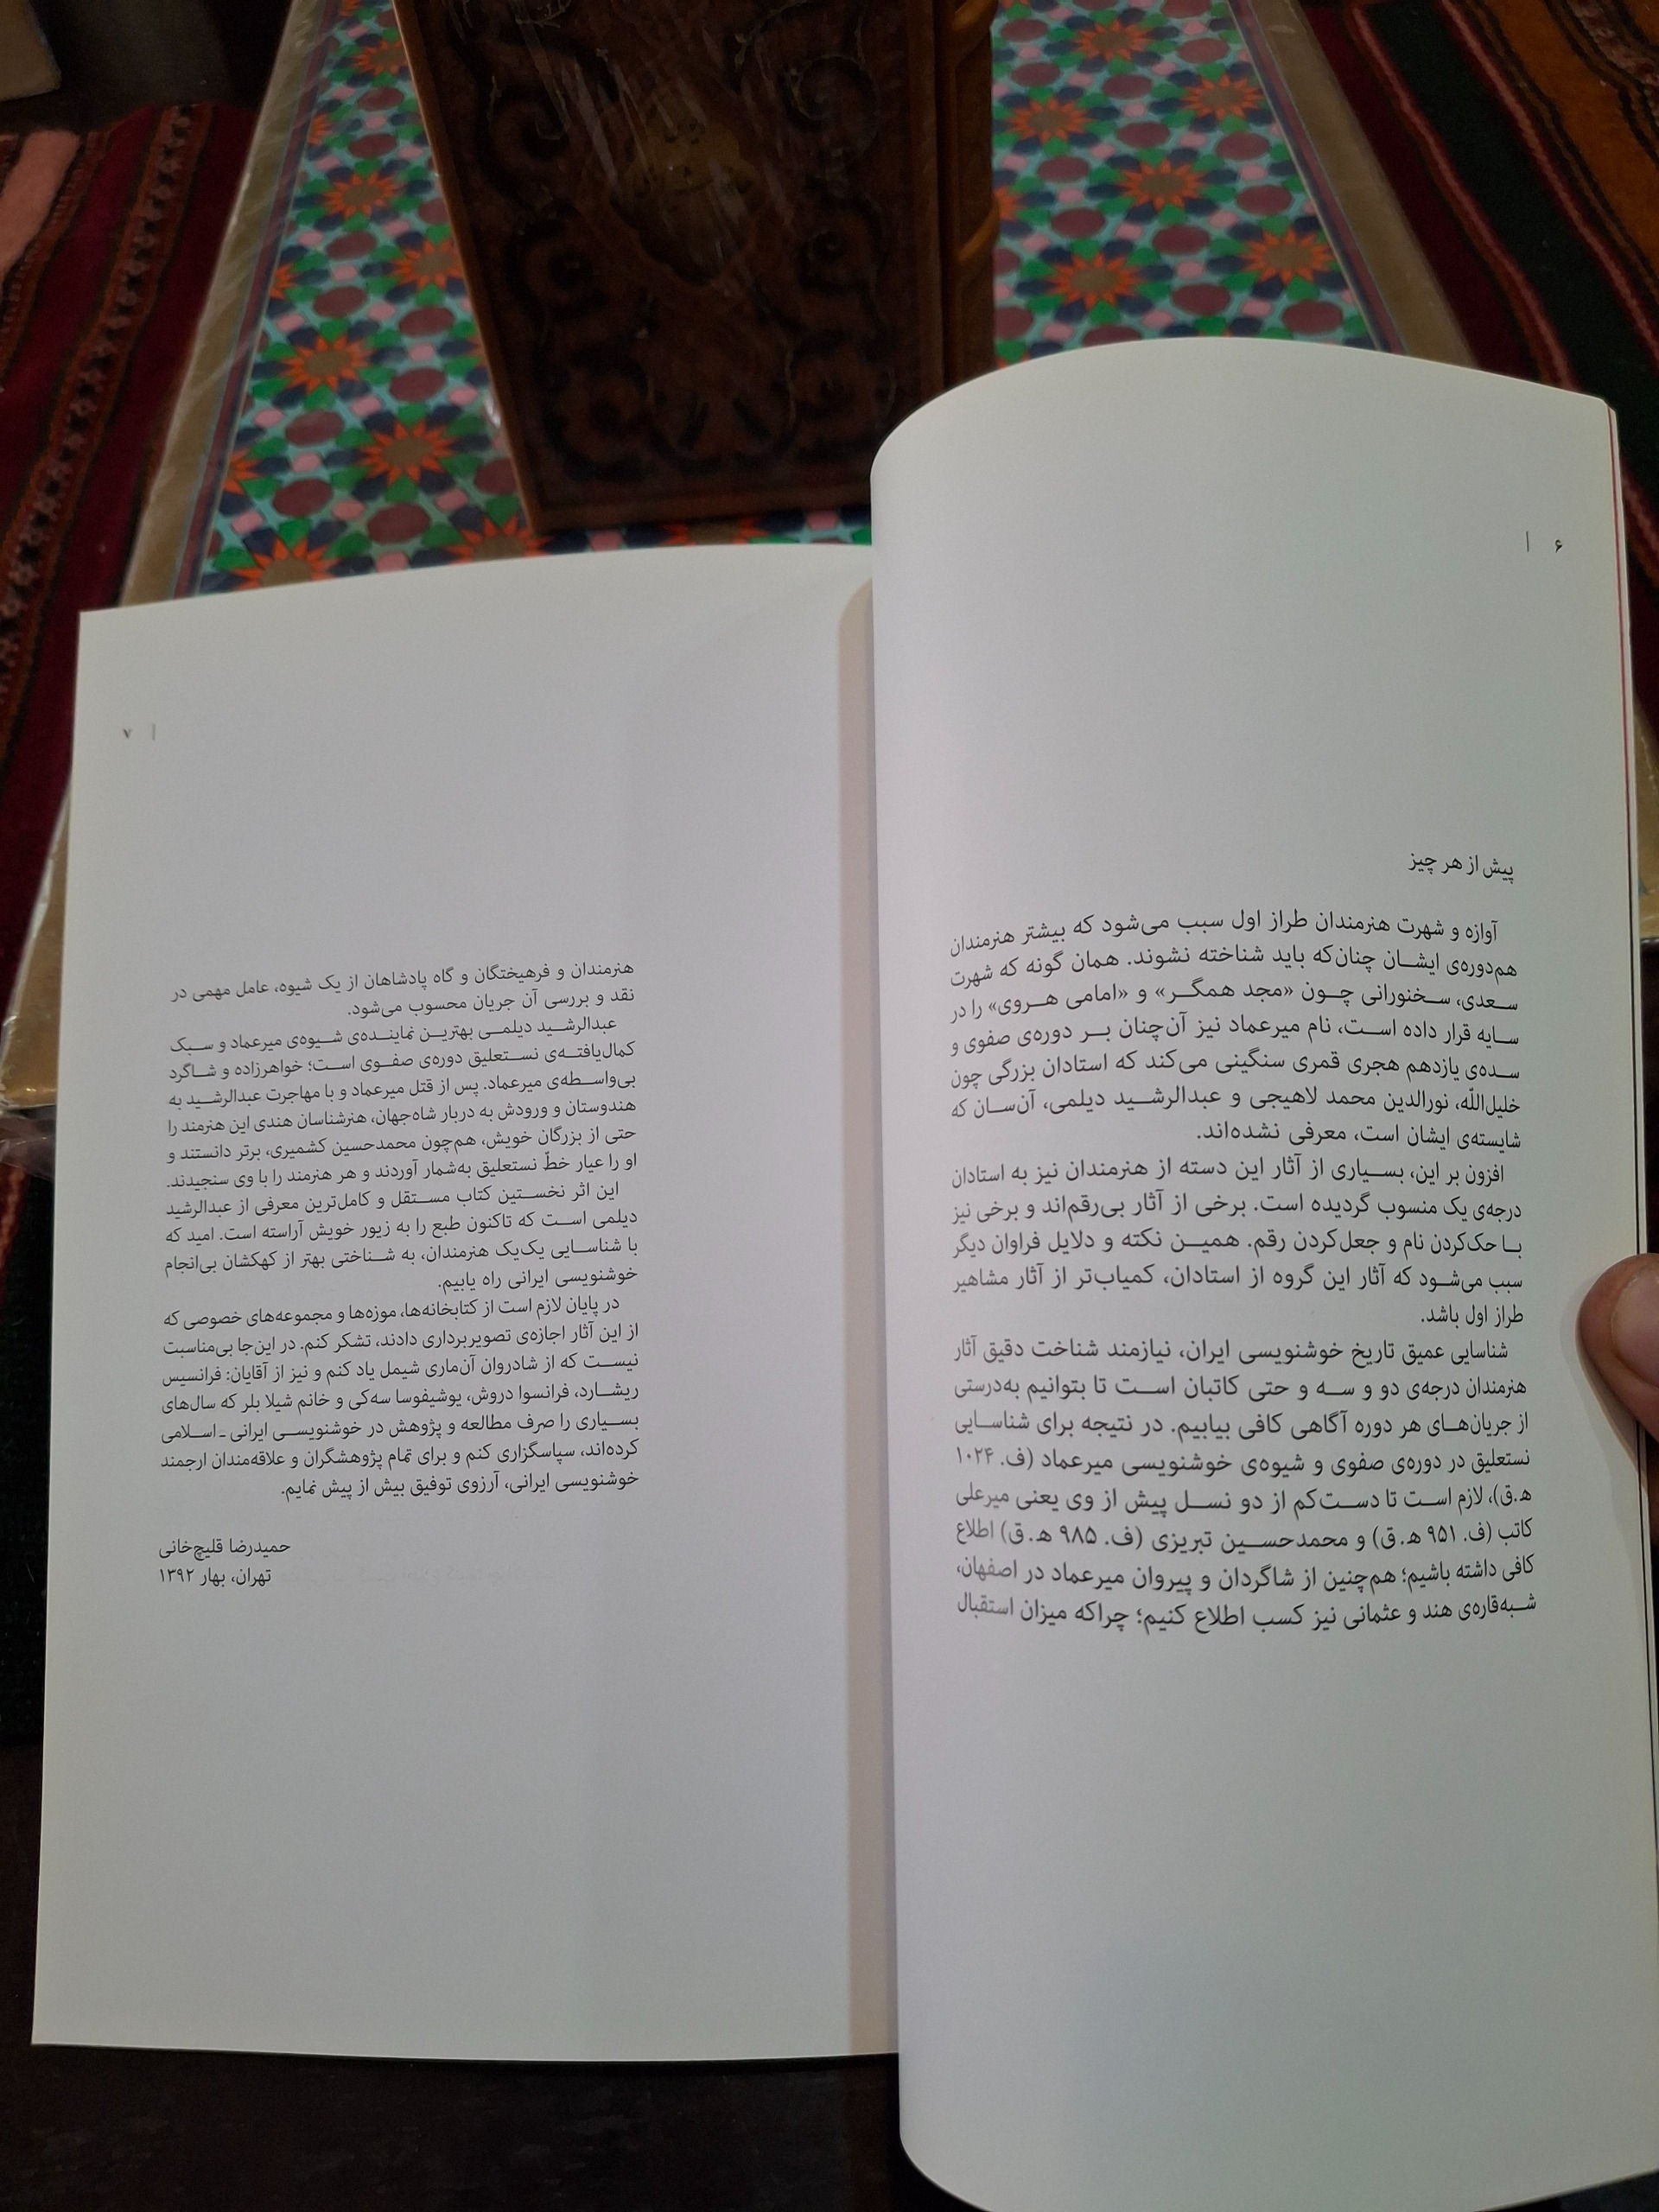 ۶ |
پیش از هر چیز
آوازه و شهرت هنرمندان طراز اول سبب می‌شود که بیشتر هنرمندان
هم‌دوره‌ی ایشـان چنان‌که باید شناخته نشوند. همان گونه که شهرت
سـعدی، سـخنورانی چـون «مجد همگـر» و «امامی هـروی» را در
سـایه قرار داده اسـت، نام میرعماد نیز آن‌چنان بـر دوره‌ی صفوی و
سـده‌ی یازدهم هجری قمری سنگینی می‌کند که استادان بزرگی چون
خلیل‌اللّه، نورالدین محمد لاهیجی و عبدالرشـید دیلمی، آن‌سـان که
شایسته‌ی ایشان است، معرفی نشده‌اند.
افزون بر این، بسـیاری از آثار این دسته از هنرمندان نیز به استادان
درجه‌ی یک منسوب گردیده است. برخی از آثار بی‌رقم‌اند و برخی نیز
بـا حک‌کردن نام و جعل‌کردن رقم. همیـن نکته و دلایل فراوان دیگر
سبب می‌شـود که آثار این گروه از استادان، کمیاب‌تر از آثار مشاهیر
طراز اول باشد.
شناسایی عمیق تاریخ خوشنویسی ایران، نیازمند شناخت دقیق آثار
هنرمندان درجه‌ی دو و سـه و حتی کاتبان اسـت تا بتوانیم به‌درستی
از جریان‌هـای هر دوره آگاهی کافی بیابیم. در نتیجه برای شناسـایی
نستعلیق در دوره‌ی صفوی و شیوه‌ی خوشنویسی میرعماد (ف. ۱۰۲۴
ه‍.ق)، لازم اسـت تا دسـت‌کم از دو نسـل پیش از وی یعنی میرعلی
کاتب (ف. ۹۵۱ ه‍.ق) و محمدحسـین تبریزی (ف. ۹۸۵ ه‍.ق) اطلاع
کافی داشته باشیم؛ هم‌چنین از شاگردان و پیروان میرعماد در اصفهان،
شـبه‌قاره‌ی هند و عثمانی نیز کسب اطلاع کنیم؛ چراکه میزان استقبال
| ۷
هنرمندان و فرهیختگان و گاه پادشاهان از یک شیوه، عامل مهمی در
نقد و بررسی آن جریان محسوب می‌شود.
عبدالرشـید دیلمـی بهتریـن نماینده‌ی شـیوه‌ی میرعماد و سـبک
کمال‌یافتـه‌ی نسـتعلیق دوره‌ی صفـوی است؛ خواهرزاده و شـاگرد
بی‌واسـطه‌ی میرعماد. پس از قتل میرعماد و با مهاجرت عبدالرشـید به
هندوستان و ورودش به دربار شاه‌جهان، هنرشناسان هندی این هنرمند را
حتی از بزرگان خویش، هم‌چون محمدحسین کشمیری، برتر دانستند و
او را عیار خطّ نستعلیق به‌شمار آوردند و هر هنرمند را با وی سنجیدند.
این اثر نخسـتین کتاب مسـتقل و کامل‌ترین معرفی از عبدالرشید
دیلمی اسـت که تاکنون طبع را به زیور خویش آراسته است. امید که
با شناسـایی یک‌یک هنرمندان، به شـناختی بهتر از کهکشان بی‌انجام
خوشنویسی ایرانی راه یابیم.
در پایان لازم است از کتابخانه‌ها، موزه‌ها و مجموعه‌های خصوصی که
از این آثار اجازه‌ی تصویربرداری دادند، تشکر کنم. در این‌جا بی‌مناسبت
نیسـت که از شادروان آن‌ماری شیمل یاد کنم و نیز از آقایان: فرانسیس
ریشـارد، فرانسوا دروش، یوشیفوسا سه‌کی و خانم شیلا بلر که سال‌های
بسـیاری را صرف مطالعه و پژوهش در خوشنویسـی ایرانی ـ اسـلامی
کرده‌اند، سپاسگزاری کنم و برای تمام پژوهشگران و علاقه‌مندان ارجمند
خوشنویسی ایرانی، آرزوی توفیق بیش از پیش نمایم.
حمیدرضا قلیچ‌خانی
تهران، بهار ۱۳۹۲